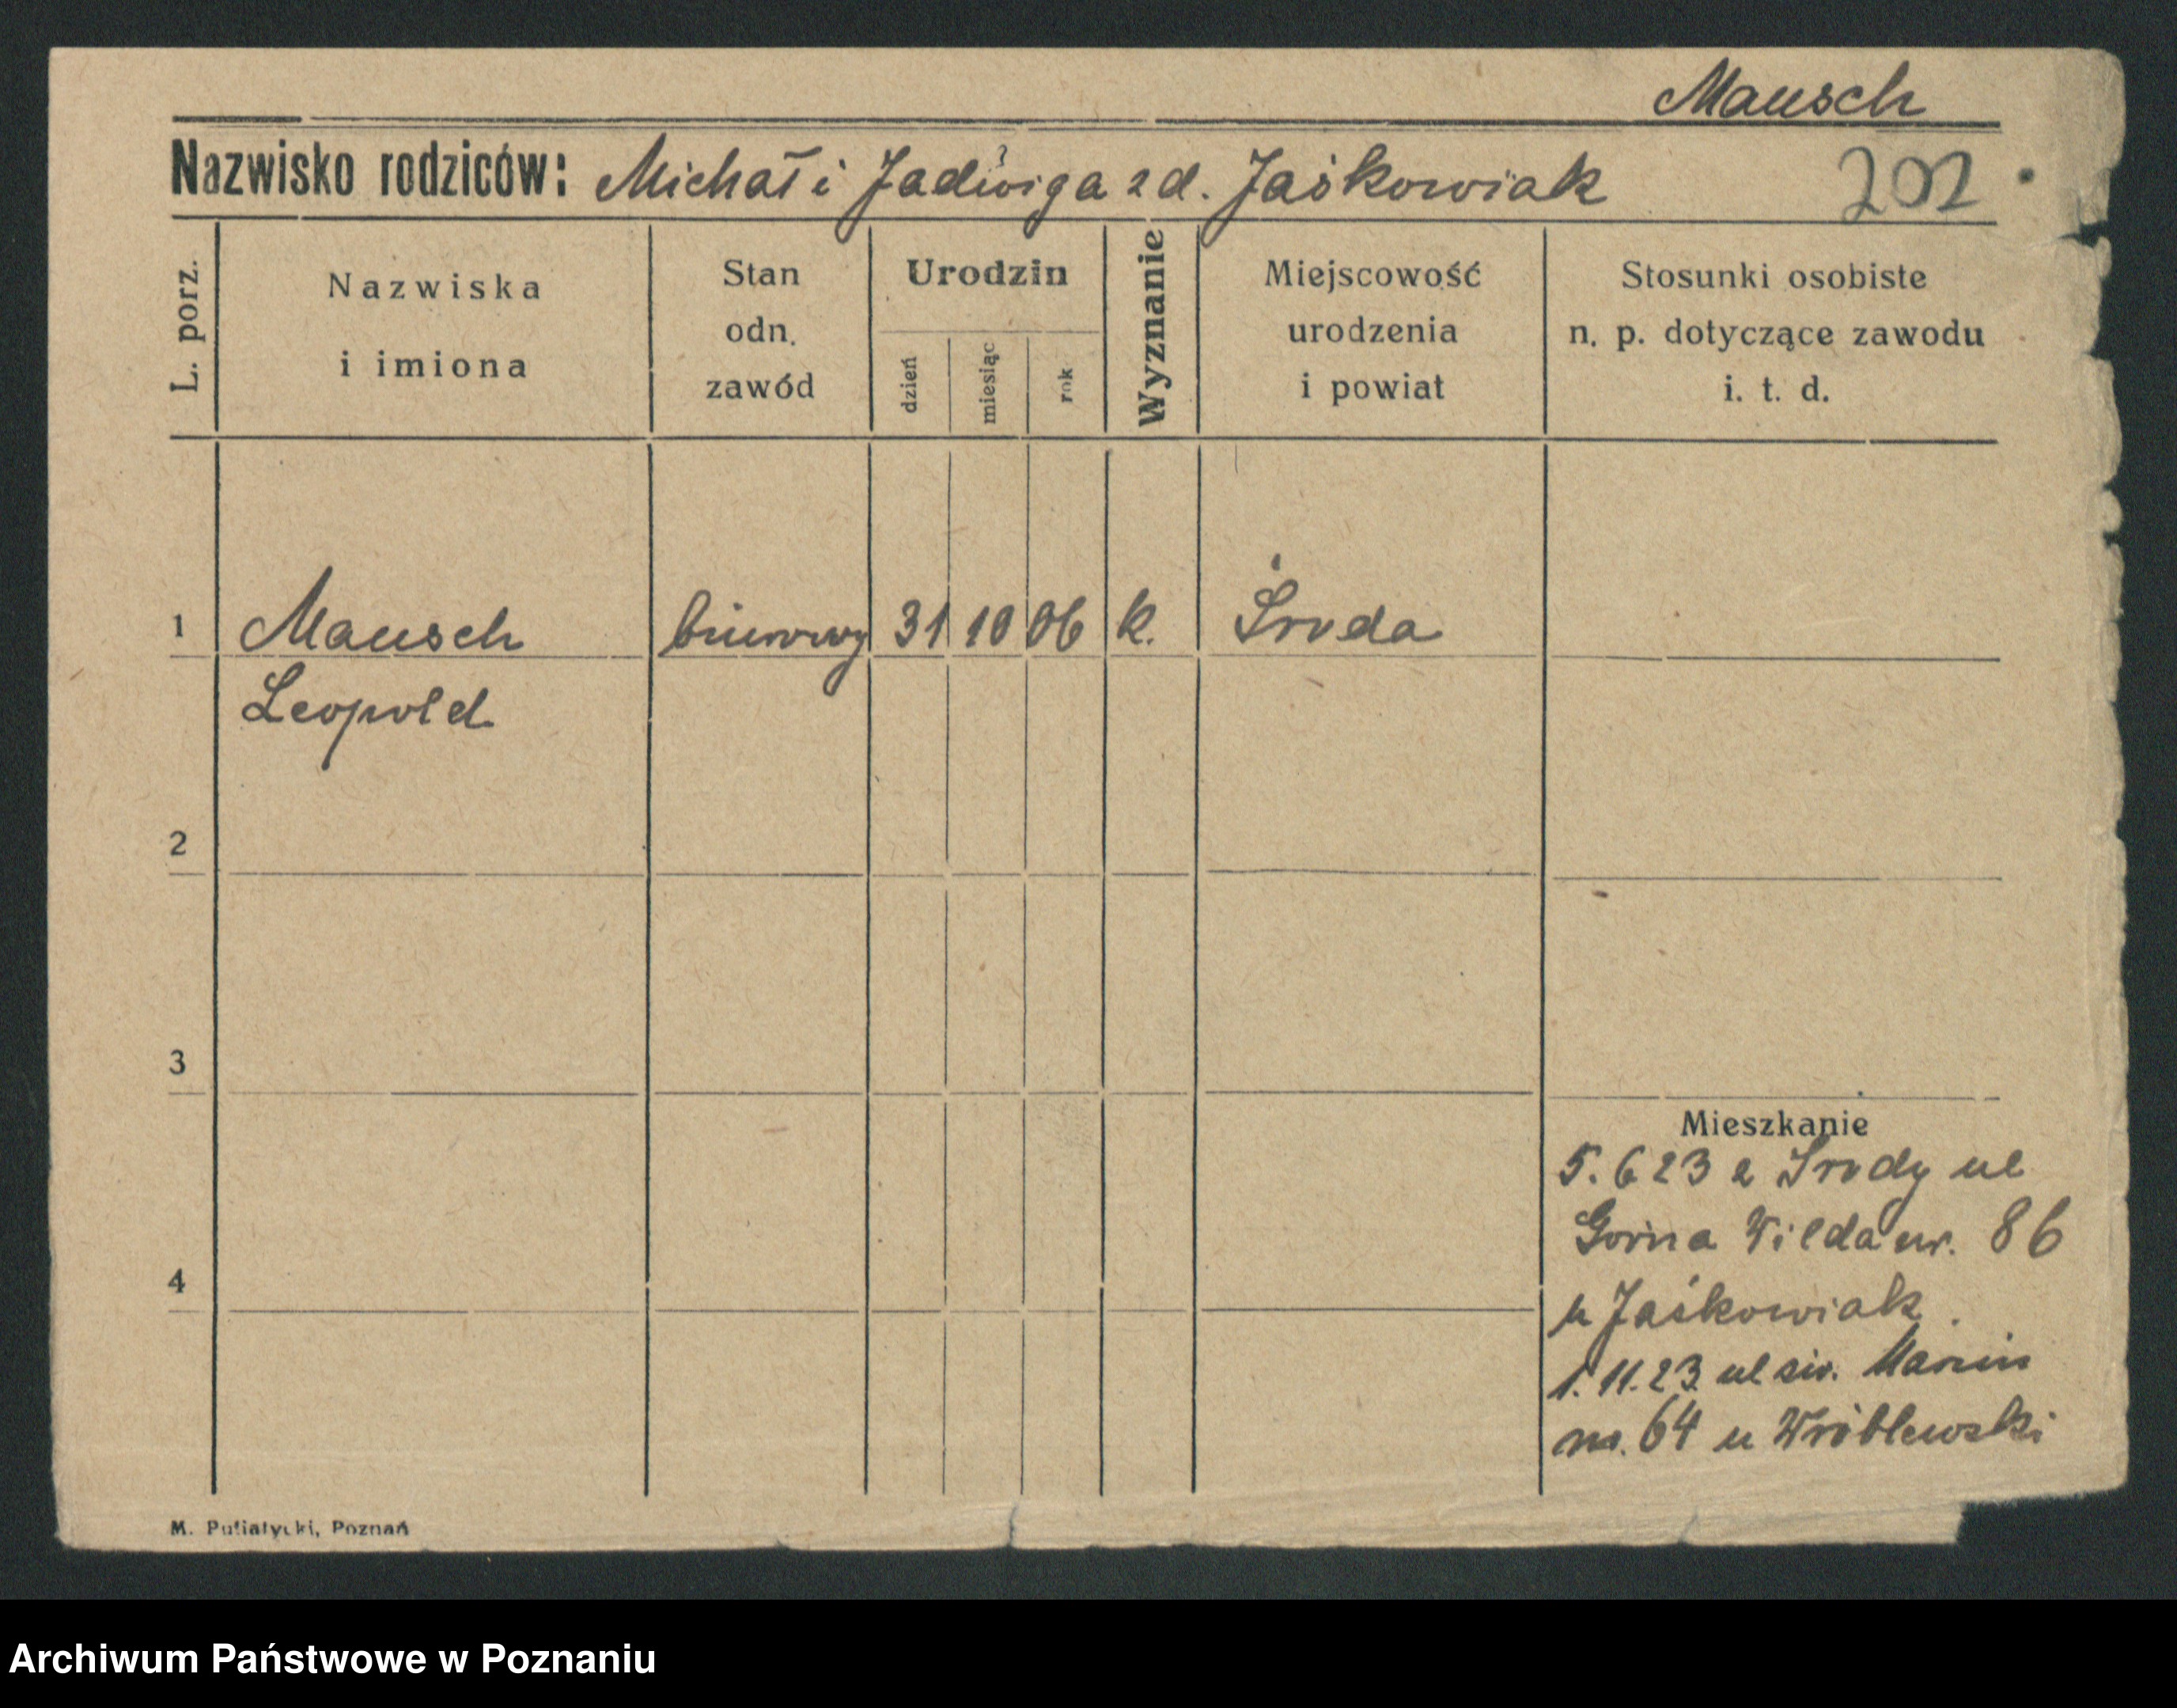 Mausch
Nazwisko rodziców: Michał i Jadwiga z d. Jaśkowiak 202
L. porz.
Nazwiska
i imiona
Stan
odn.
zawód
Urodzin
dzień
miesiąc
rok
Wyznanie
Miejscowość
urodzenia
i powiat
Stosunki osobiste
n. p. dotyczące zawodu
i. t. d.
1 Mausch biurowy 31 10 06 k. Środa
Leopold
2
3
4
Mieszkanie
5. 6 23 z Środy ul
Górna Wilda nr. 86
u Jaśkowiak.
1. 11. 23 ul św. Marcin
nr. 64 u Wróblewski
M. Putiatycki, Poznań
Archiwum Państwowe w Poznaniu